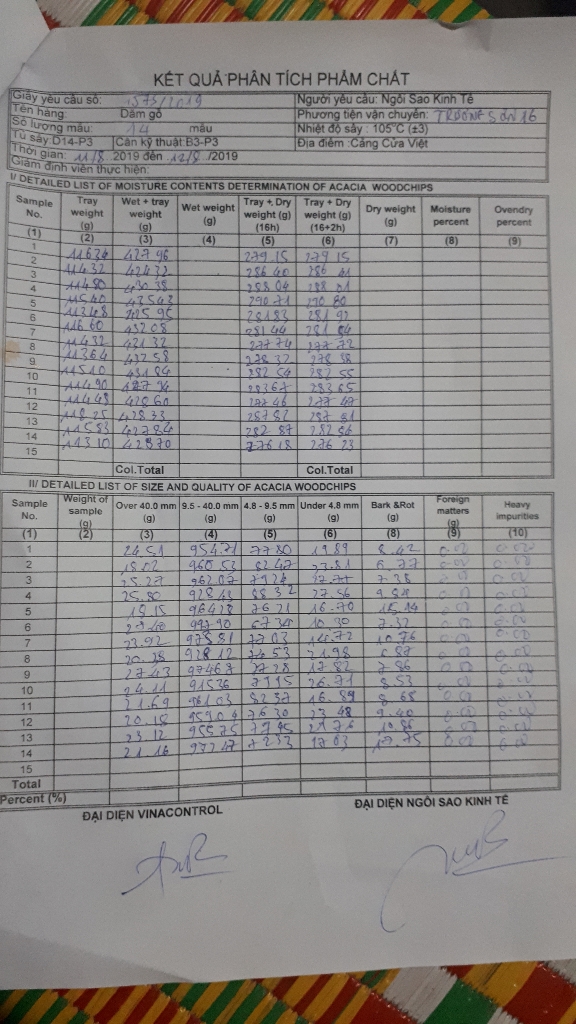 KẾT QUẢ PHÂN TÍCH PHẨM CHẤT
Giấy yêu cầu số: 1573/2019 Người yêu cầu: Ngôi Sao Kinh Tế
Tên hàng: Dăm gỗ Phương tiện vận chuyển: TRƯỜNG SƠN 16
Số lượng mẫu: 14 mẫu Nhiệt độ sấy : 105°C (±3)
Tủ sấy D14-P3 Cân kỹ thuật B3-P3 Địa điểm :Cảng Cửa Việt
Thời gian: 11/8 2019 đến 12/8 /2019
Giám định viên thực hiện:
I/ DETAILED LIST OF MOISTURE CONTENTS DETERMINATION OF ACACIA WOODCHIPS
Sample No. Tray weight (g) Wet + tray weight (g) Wet weight (g) Tray + Dry weight (g) (16h) Tray + Dry weight (g) (16+2h) Dry weight (g) Moisture percent Ovendry percent
(1) (2) (3) (4) (5) (6) (7) (8) (9)
1 116 34 427 96 279 15 279 15
2 114 32 424 32 286 40 286
3 114 80 430 38 288 04 288
4 115 40 435 43 290 71 290 80
5 113 48 425 95 281 83 281
6 116 60 432 08 281 44 281
7 114 32 431 32 277 74 277 72
8 113 64 432 58 278 32 278
9 115 10 431 84 282 54 282 55
10 114 90 427 94 283 67 283 65
11 114 48 428 60 277 46 277 47
12 118 25 428 33 287 82 287
13 115 83 427 84 282 87 282
14 113 10 428 70 276 18 276 23
15
Col.Total Col.Total
II/ DETAILED LIST OF SIZE AND QUALITY OF ACACIA WOODCHIPS
Sample No. Weight of sample (g) Over 40.0 mm (g) 9.5 - 40.0 mm (g) 4.8 - 9.5 mm (g) Under 4.8 mm (g) Bark &Rot (g) Foreign matters (g) Heavy impurities
(1) (2) (3) (4) (5) (6) (8) (9) (10)
1 24.51 954.71 77 80 19 89 8.42 0.00 0.00
2 18.02 960 53 82 47 23.81 6.77 0.00 0.00
3 25.27 962 07 79 7.38 0.00 0.00
4 25.80 928 43 88 32 27.56 0.00 0.00
5 964 28 76 21 16.70 15.14 0.00 0.00
6 997 90 67 34 10 30 7.32 0.00 0.00
7 23.92 975 81 77 03 14.72 10.76 0.00 0.00
8 20.28 928 12 53 21.98 6.87 0.00 0.00
9 27 43 974 67 77 28 17.82 7.86 0.00 0.00
10 24.11 915 36 79 15 26.71 8.53 0.00 0.00
11 21.69 961 03 82 37 16.89 8.68 0.00 0.00
12 20.18 959 04 76 30 23 48 9.40 0.00 0.00
13 23 12 955 75 77 95 10.86 0.00 0.00
14 21.16 937 47 72 33 17 03 17.75 0.00 0.00
15
Total
Percent (%)
ĐẠI DIỆN VINACONTROL ĐẠI DIỆN NGÔI SAO KINH TẾ